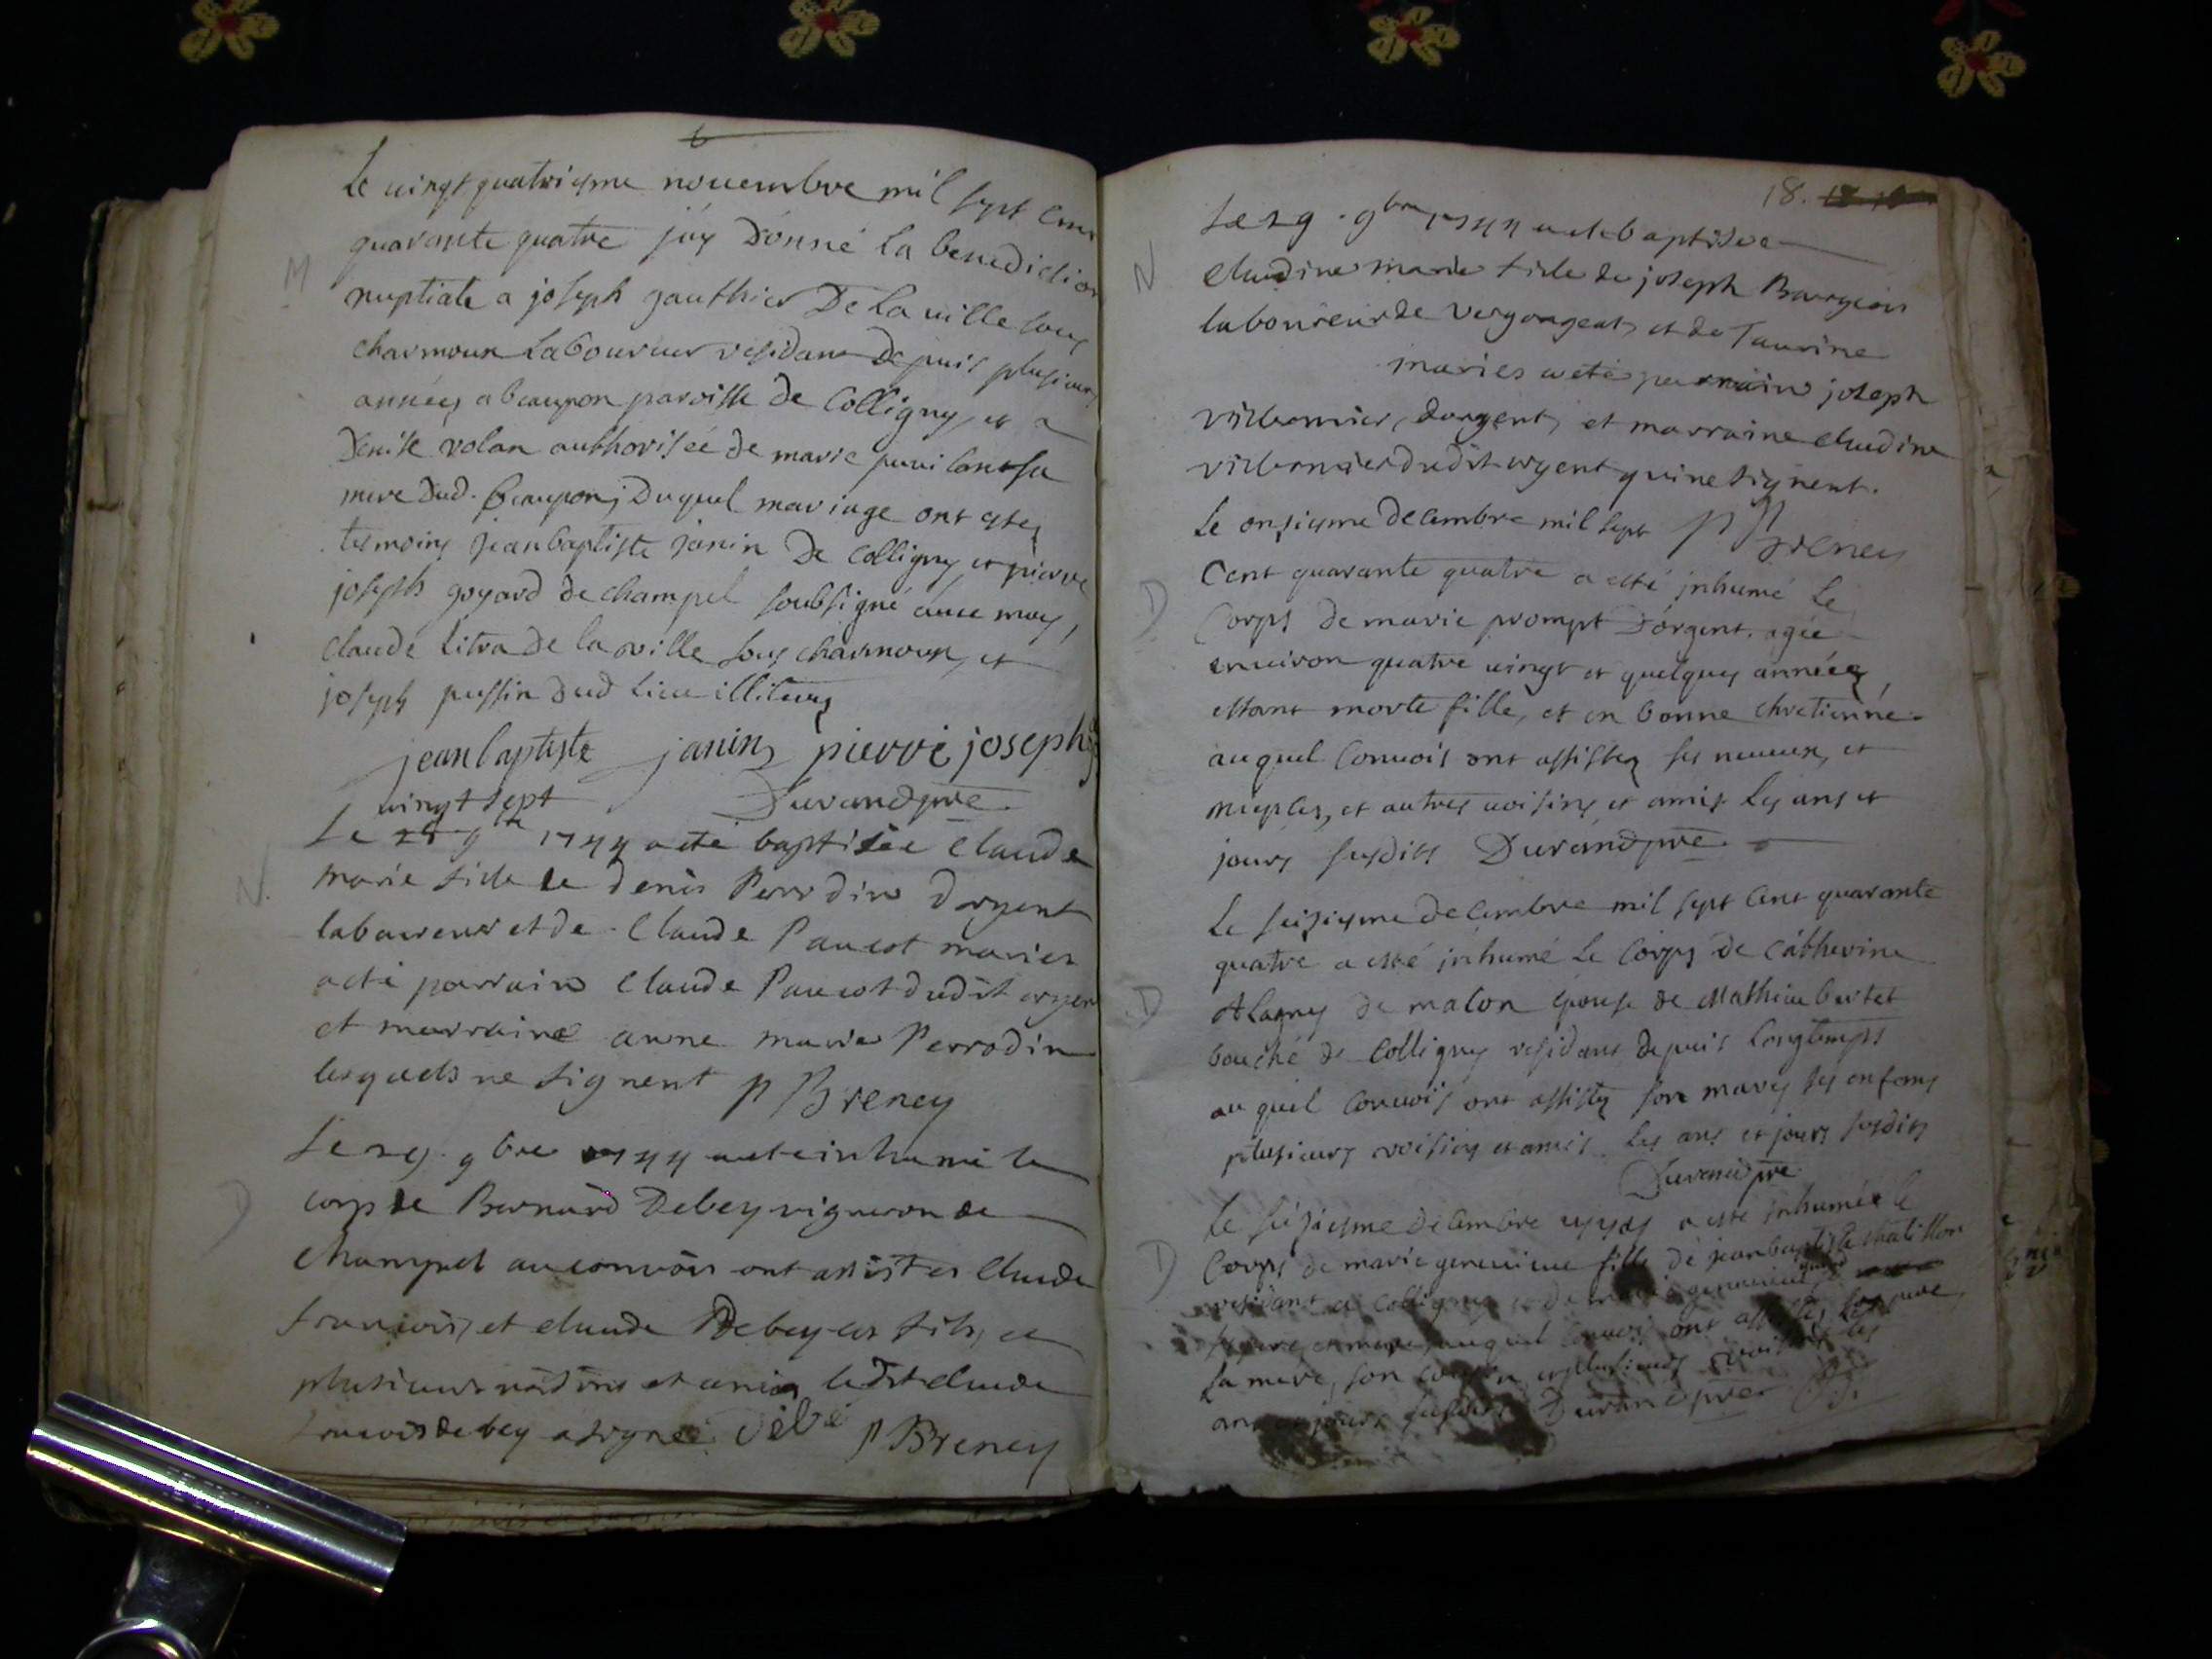 Le vingt quatriesme novembre mil sept cent
quarante quatre j'ay donné la benediction
M
nuptiale a joseph gauthier De la ville sous
charmoux Laboureur residant depuis plusieurs
années a beaupon paroisse de Colligny, et a
Denise volan authorisée de marie sa
mere dud. Beaupon, Duquel mariage ont estez
tesmoins jean baptiste janin de Colligny et pierre
joseph goyard de champel soubsigné avec moy,
claude Litra de la ville sous charmoux, et
joseph pussin dud Lieu illiterez
jean baptiste janin pierre joseph
Durand pre.
vingt sept
Le 28 9bre 1744 a eté baptisée Claude
N.
marie fille de denis Perrodin dorgent
laboureur et de Claude Paucot mariés
a eté parrain Claude Paucot dudit orgent
et marraine anne marie Perrodin
lesquels ne signent p Breney
Le 29. 9bre 1744 a eté inhumé le
D
corps de Bernard Debey vigneron de
Champel au convois ont assistes Claude
francois, et claude Debey ses fils, et
plusieurs voisins et amis ledit claude
francois debey a signé P Breney
18.
Le 29. 9bre 1744 a eté baptisée
N
Claudine marie fille de joseph Bourgeois
laboureur de Vergongeat, et de Taurine
mariés a eté parrain joseph
dorgent, et marraine claudine
dudit orgent qui ne signent.
P Breney
Le onziesme decembre mil sept
Cent quarante quatre a esté inhumé Le
D
Corps de marie prompt D'orgent. agée
environ quatre vingt et quelques années,
estant morte fille, et en bonne chretienne.
auquel Convois ont assistez ses neveux, et
niepces, et autres voisins et amis Les ans et
jours susdits Durand pre.
Le seiziesme decembre mil sept Cent quarante
quatre a esté inhumé Le Corps de Catherine
D
Alagny de malon epouse de Mathieu bertet
bouché de Colligny residans depuis Longtemps
auquel Convois ont assistez son mary ses enfans
plusieurs voisins et amis Les ans et jours susdits
Durand pre
Le decembre a esté inhumée le
D
Corps de marie genevieve fille de jean baptiste chatillon
residant a Colligny et de marie genevieve
ses pere et mere, auquel convois ont assistez son pere,
La mere, son et plusieurs voisins les
ans et jours susdits Durand pre